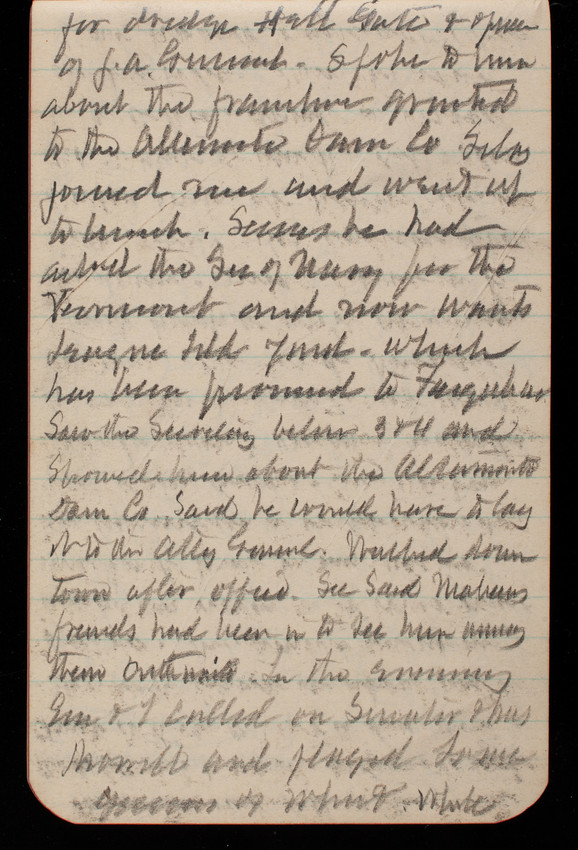 for dredge Hell Gate & open
of J. A. Crummel. Spoke to him
about the franchise granted
to the Altamonte Dam Co
joined me and went up
to lunch. Seems he had
asked the Sec of Navy for the
Vermont and now wants
League Isld Yard. which
has been promised to Farquhar
Saw the Secretary before 3 & 4 and
showed him about the Altamonte
Dam Co. Said he would have to lay
it to the Atty General. Walked down
town after office. Sec Said Mahans
friends had been in to see him among
them. In the evening
Em & I called on Senator & Mrs
and played some
games of Whist. While